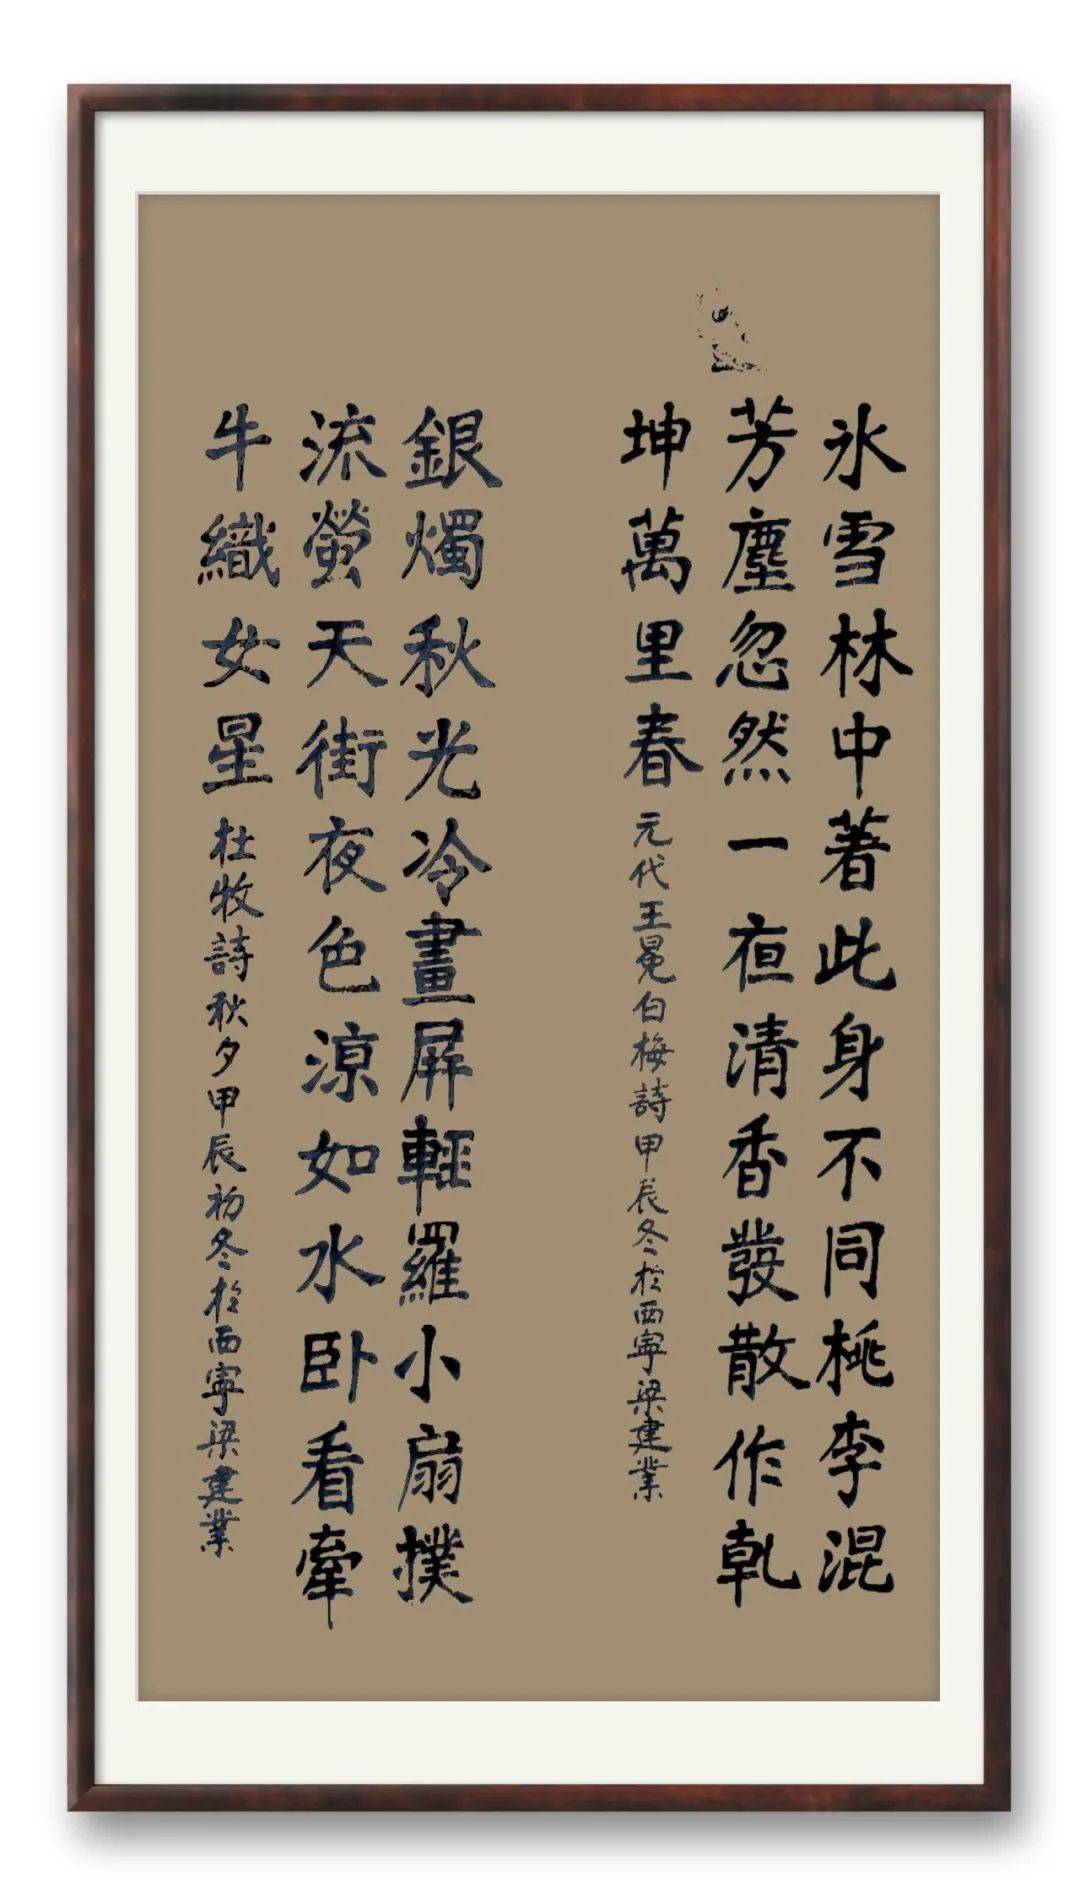 冰雪林中著此身不同桃李混
芳塵忽然一夜清香發散作乾
坤萬里春
元代王冕白梅詩甲辰冬於西寧梁建業
銀燭秋光冷畫屏輕羅小扇撲
流螢天街夜色涼如水卧看牽
牛織女星
杜牧詩秋夕甲辰初冬於西寧梁建業